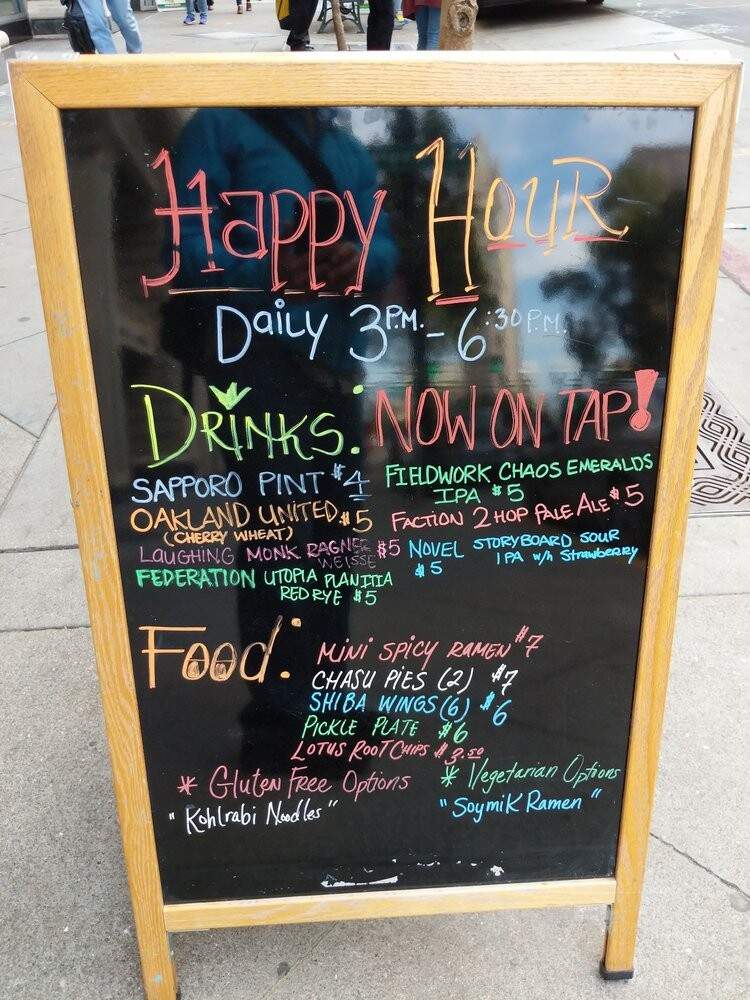 Happy Hour
Daily 3P.M. - 6:30P.M.
DRINKS:
SAPPORO PINT $4
OAKLAND UNITED $5
(CHERRY WHEAT)
LAUGHING MONK RAGNER $5
WEISSE
FEDERATION UTOPIA PLANITIA
RED RYE $5
NOW ON TAP!
FIELDWORK CHAOS EMERALDS
IPA $5
FACTION 2 HOP PALE ALE $5
NOVEL STORYBOARD SOUR
$5 IPA w/h Strawberry
Food:
MINI SPICY RAMEN $7
CHASU PIES (2) $7
SHIBA WINGS (6) $6
PICKLE PLATE $6
LOTUS ROOT CHIPS $3.50
* Gluten Free Options
"Kohlrabi Noodles"
* Vegetarian Options
"Soymik Ramen"